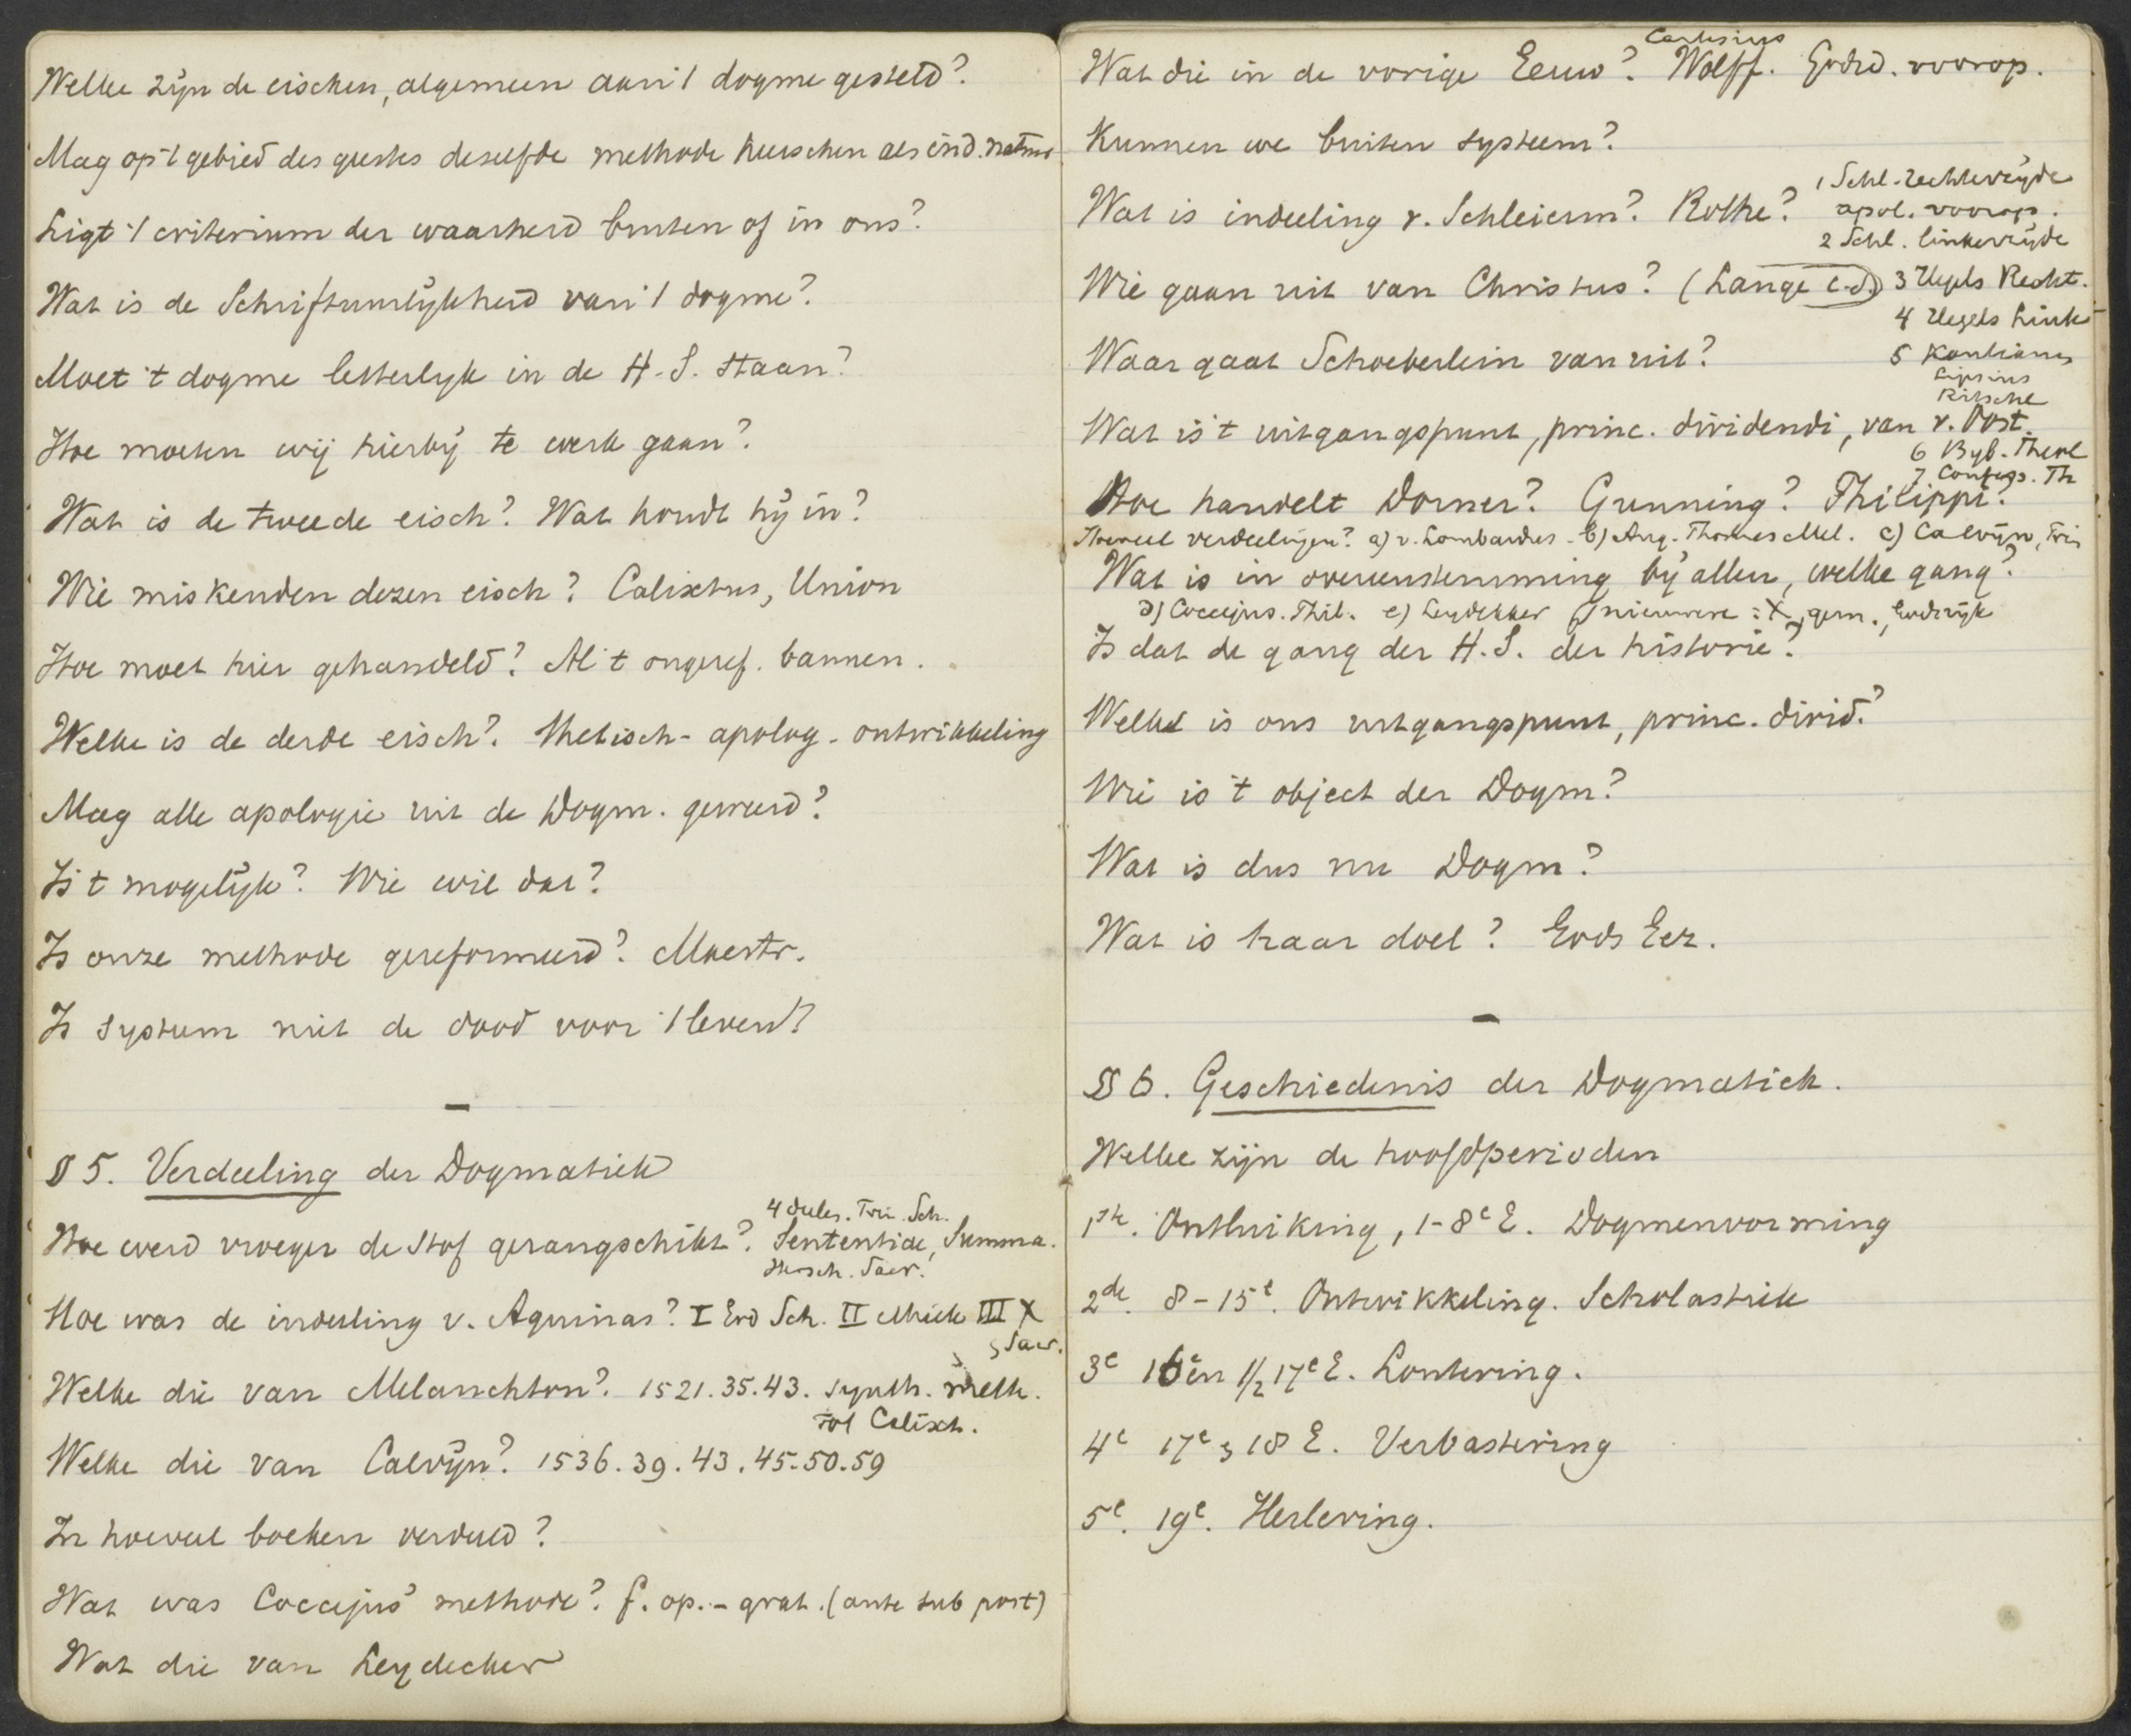 Welke zijn de eischen, algemeen aan 't dogme gesteld?
Mag op 't gebied des geestes deselfde methode heerschen als in d. natuur
Ligt 't criterium der waarheid buiten of in ons?
Wat is de Schriftuurlijkheid van 't dogme?
Moet 't dogme letterlyk in de H. S. staan?
Hoe moeten wij hierbij te werk gaan?
Wat is de tweede eisch? Wat houdt hij in?
Wie miskenden dezen eisch? Calixtus, Union
Hoe moet hier gehandeld? Al 't ongeref. bannen.
Welke is de derde eisch? Thetisch - apolog - ontwikkeling
Mag alle apologie uit de Dogm. geweerd?
Is 't mogelijk? Wie wil dat?
Is onze methode gereformeerd? Maestr.
Is systeem niet de dood voor 't leven?
§ 5. Verdeeling der Dogmatiek
4 deelen. Trin. Sch.
Hoe werd vroeger de stof gerangschikt? Sententiae, Summa.
Mensch. Sacr.
Hoe was de indeeling v. Aquinas? I God Sch. II Ethiek III X
Sacr.
Welke die van Melanchton? 1521. 35. 43. synth. meth.
tot Calixt.
Welke die van Calvijn? 1536. 39. 43. 45. 50. 59
In hoeveel boeken verdeeld?
Wat was Coccejus' methode? f. op. - grat. (ante sub post)
Wat die van Leydecker
Cartesius
Wat die in de vorige Eeuw? Wolff. Godsd. voorop.
Kunnen we buiten systeem?
1 Schl. rechterzijde
Wat is indeeling v. Schleierm? Rothe? apol. voorop.
2 Schl. linkerzijde
Wie gaan uit van Christus? (Lange c.s.) 3 Hegels Recht.
4 Hegels Link
Waar gaat Schoeberlein van uit? 5 Kantianen
Lipsius
Ritschl
Wat is 't uitgangspunt, princ. dividendi, van v. Oost.
6 Bijb. Theol
7 Confess. Th
Hoe handelt Dorner? Gunning? Philippi?
Hoeveel verdeelingen? a) v. Lombardus - b) Aug. Thomas Mel. c) Calvijn, Trin
Wat is in overeenstemming bij allen, welke gang?
d) Coccejus. Thil. e) Leydekker f) nieuwere: X, gem., Godsrijk
Is dat de gang der H. S. der historie?
Welke is ons uitgangspunt, princ. divid.?
Wie is 't object der Dogm?
Wat is dus nu Dogm?
Wat is haar doel? Gods Eer.
§ 6. Geschiedenis der Dogmatiek.
Welke zijn de hoofdperioden
1ste. Ontluiking, 1-8e E. Dogmenvorming
2de. 8-15e. Ontwikkeling. Scholastiek
3e 16 en 1/2 17e E. Loutering.
4e 17e & 18 E. Verbastering
5e. 19e. Herleving.